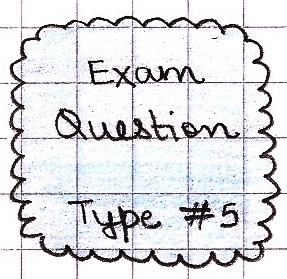 Exam
Question
Type #5